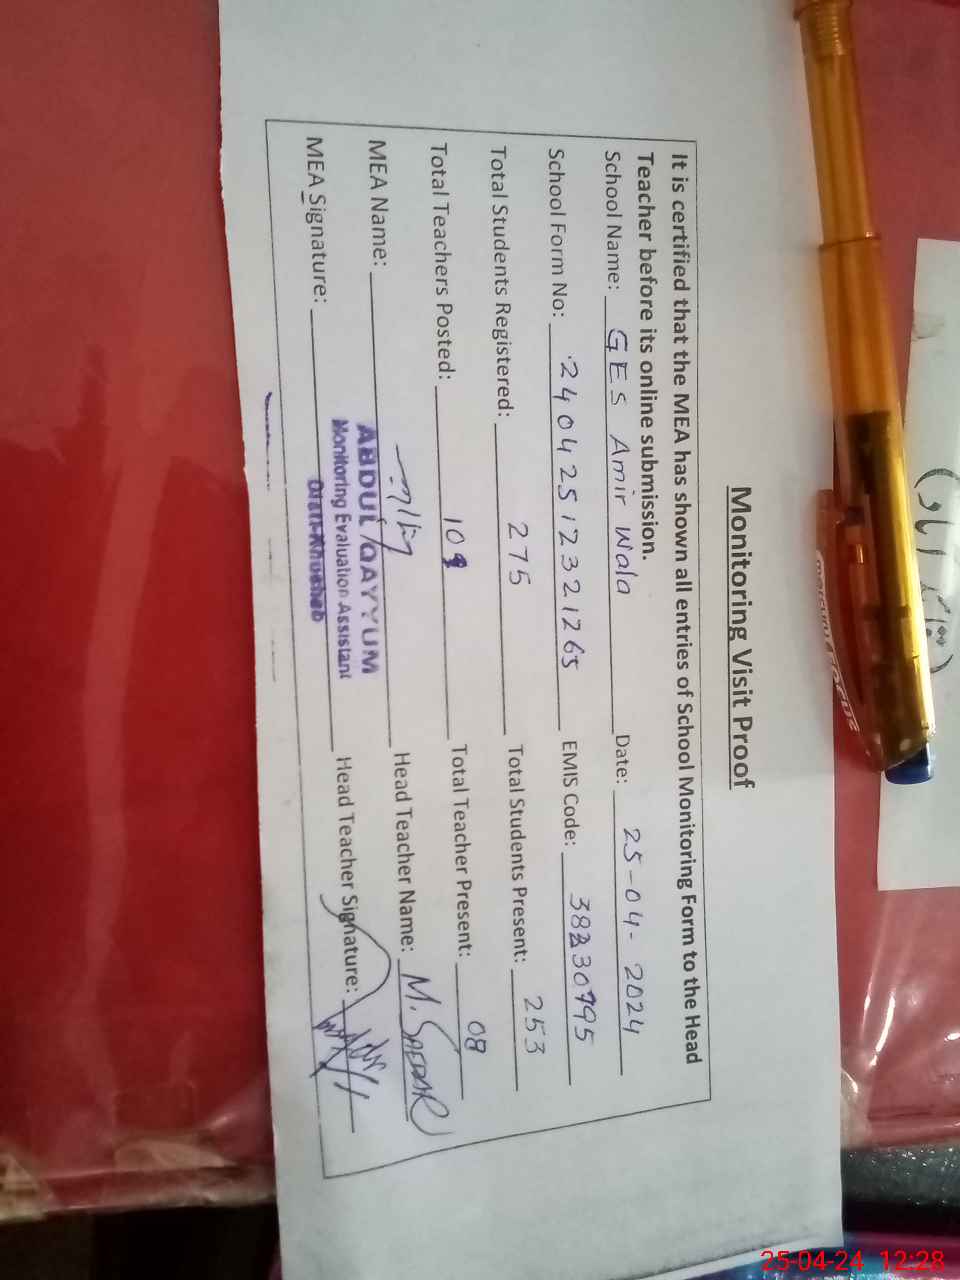 Monitoring Visit Proof
It is certified that the MEA has shown all entries of School Monitoring Form to the Head
Teacher before its online submission.
School Name: GES Amir Wala Date: 25-04-2024
School Form No: 24042512321265 EMIS Code:
Total Students Registered: 275 Total Students Present: 253
Total Teachers Posted: 10 Total Teacher Present: 08
MEA Name: ABDUL QAYYUM Head Teacher Name: M. SAFDAR
Monitoring Evaluation Assistant
MEA Signature: Head Teacher Signature:
25-04-24 12:28